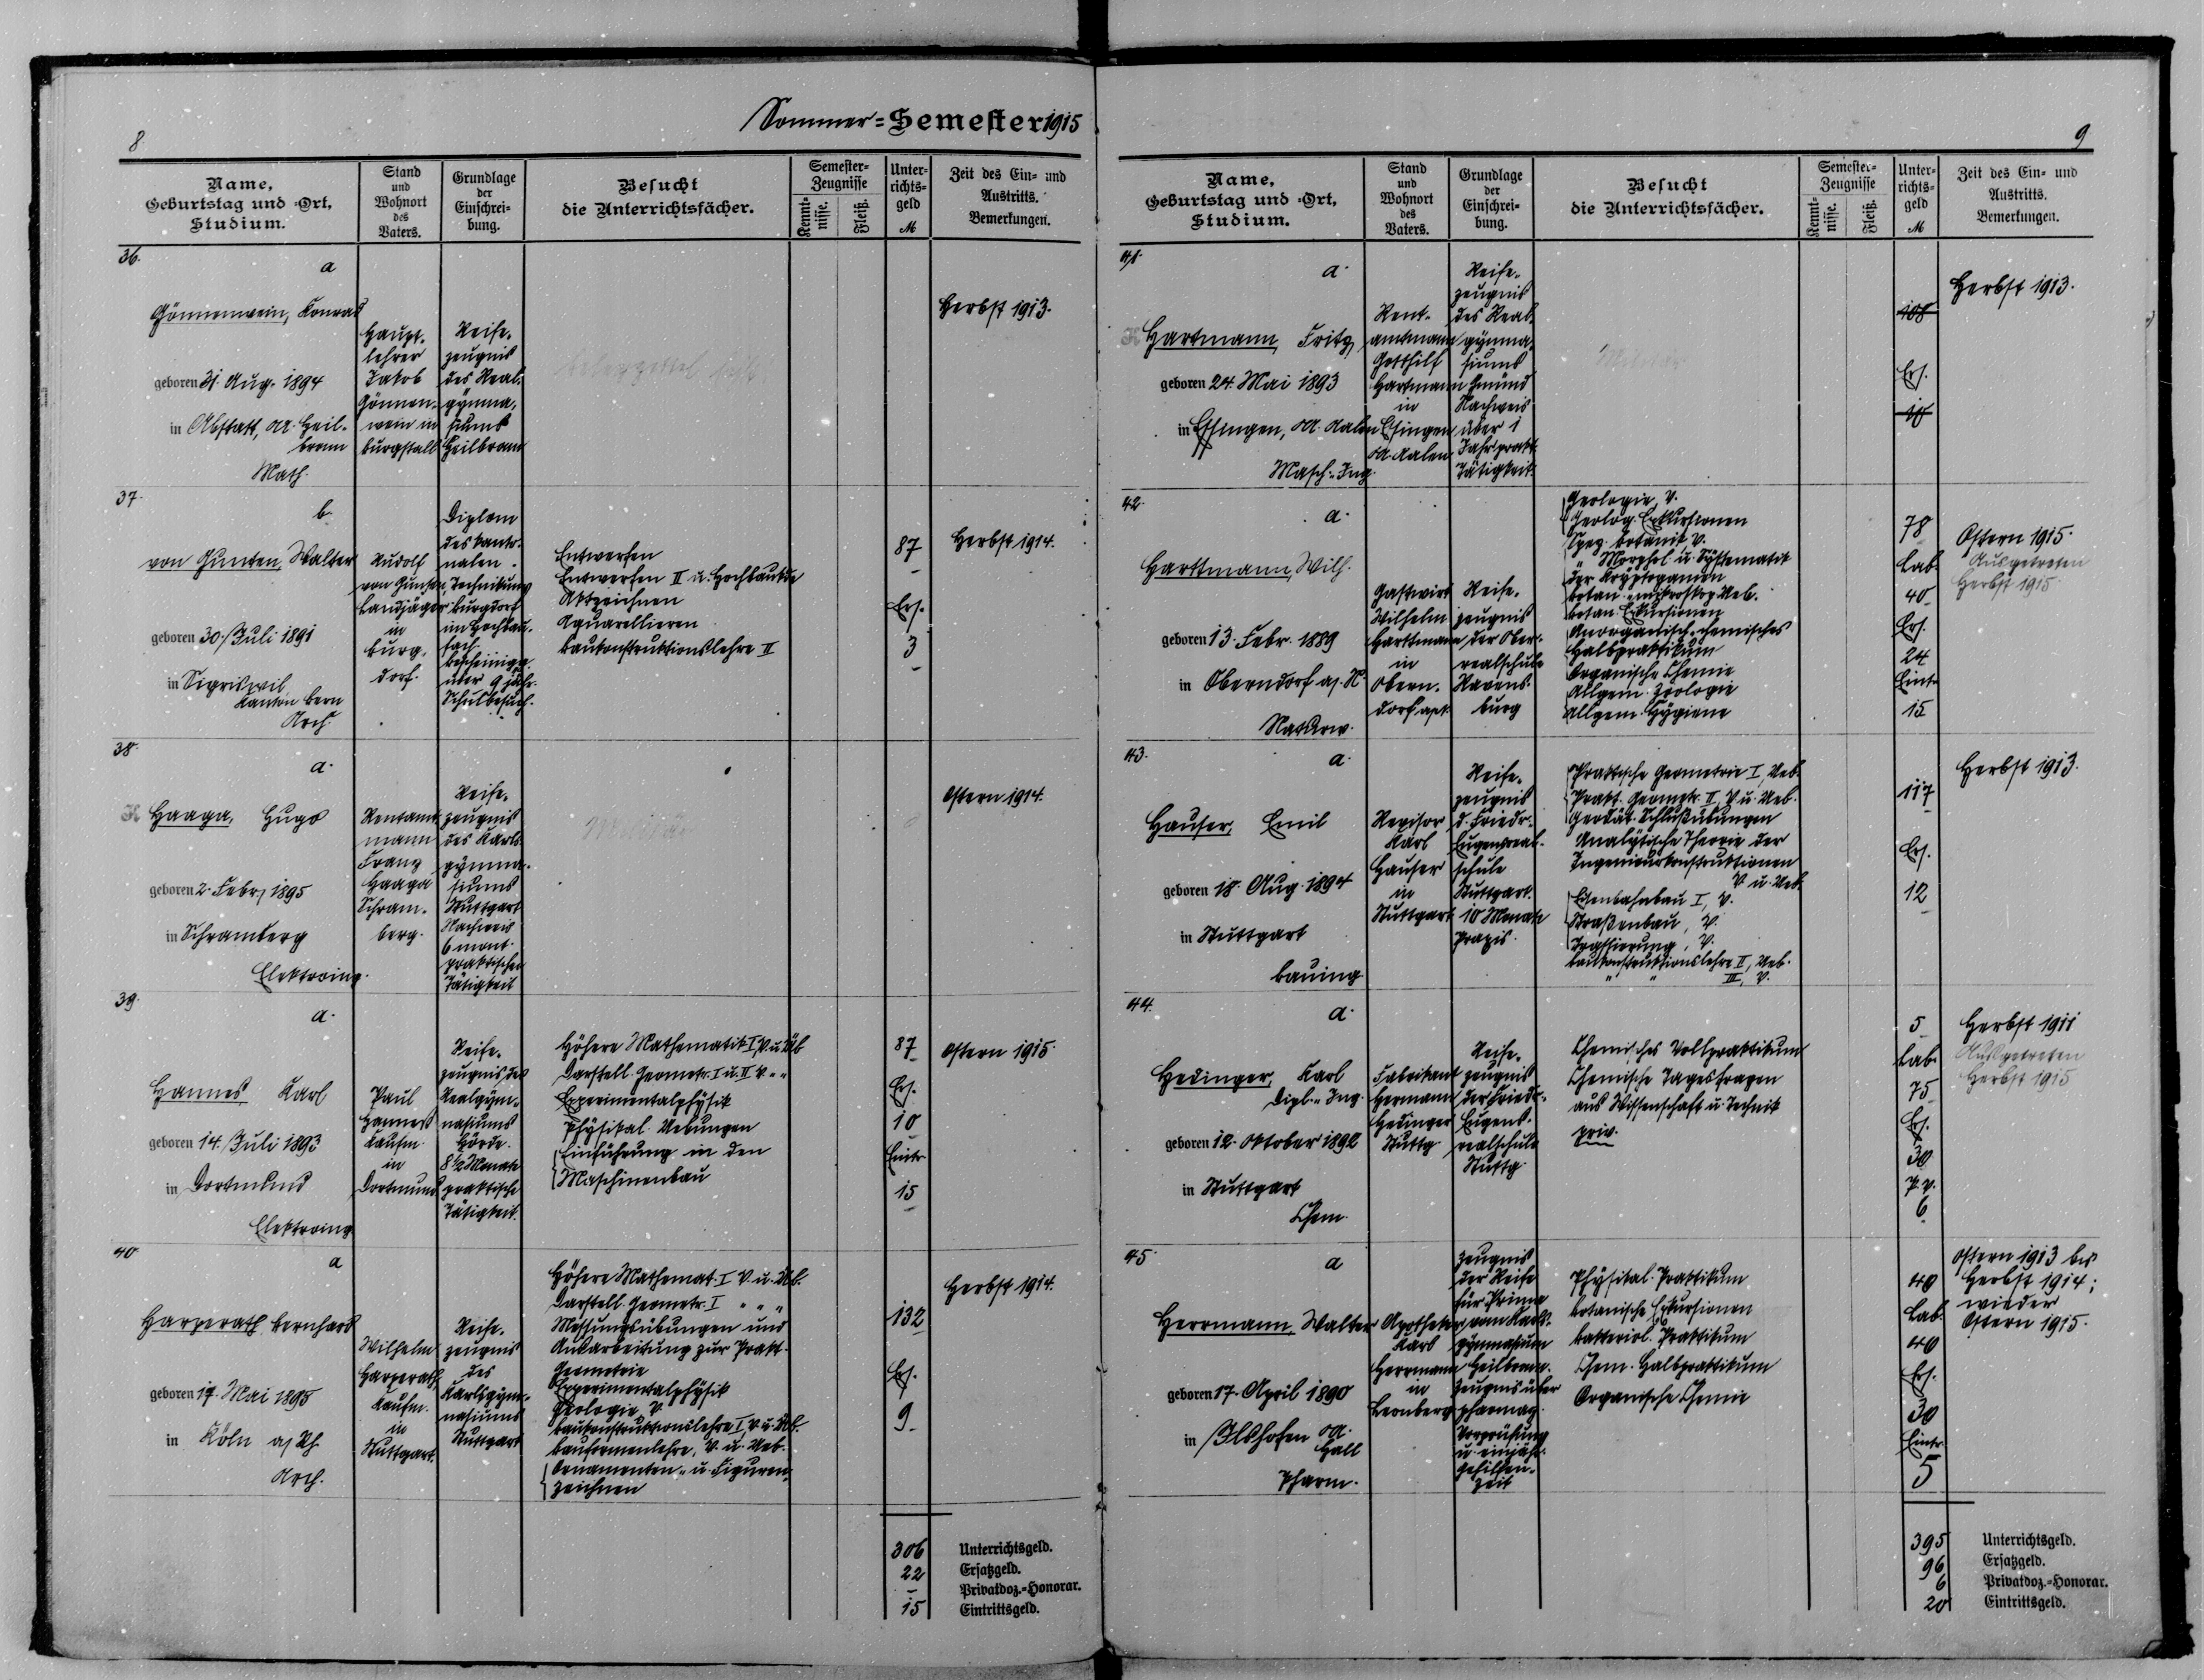 8
Sommer=Semester 1915
Name,
Geburtstag und =Ort,
Studium.
Stand
und
Wohnort
des
Vaters.
Grundlage
der
Einschrei=
bung.
Besucht
die Unterrichtsfächer.
Semester=
Zeugnisse
Kennt=
nisse.
Fleiß.
Unter=
richts=
geld
M
Zeit des Ein= und
Austritts.
Bemerkungen.
36.
a
Gönnenwein, Konrad
geboren 31. Aug. 1894
in Abstatt, OA. Heil-
bronn
Math.
Haupt-
lehrer
Jakob
Gönnen-
wein in
Burgstall
Reife-
zeugnis
des Real-
gymna-
siums
Heilbronn
Belegzettel
Herbst 1913.
37.
b.
von Gunten, Walter
geboren 30. Juli 1891
in Sigriswil
Kanton Bern
Arch.
Rudolf
von Gunten,
Landjäger
in
Burg-
dorf.
Diplom
des kanto-
nalen
Technikums
Burgdorf
im Hochbau-
fach
Bescheinigg.
über 9 jähr.
Schulbesuch.
Entwerfen
Entwerfen II u. Hochbaukde
Aktzeichnen
Aquarellieren
Baukonstruktionslehre II
87
Ers.
3
Herbst 1914.
38.
a.
K Haaga, Hugo
geboren 2. Febr. 1895
in Schramberg
Elektroing.
Rentamt-
mann
Franz
Haaga
Schram-
berg.
Reife-
zeugnis
des Karls-
gymna-
siums
Stuttgart
Nachweis
6 mont.
praktischer
Tätigkeit
Militär
Ostern 1914.
39.
a.
Hannes, Karl
geboren 14. Juli 1893
in Dortmund
Elektroing.
Paul
Hannes
Kaufm.
in
Dortmund
Reife-
zeugnis des
Realgym-
nasiums
Hörde.
8½ Monate
praktische
Tätigkeit.
Höhere Mathematik I, V. u. Üb
Darstell. Geometr. I u. II V. " "
Experimentalphysik
Physikal. Uebungen
Einführung in den
Maschinenbau
87
Ers.
10
Eintr
15
Ostern 1915.
40
a
Harperath, Bernhard
geboren 17. Mai 1895
in Köln a/Rh
Arch.
Wilhelm
Harperath
Kaufm.
in
Stuttgart.
Reife-
zeugnis
des
Karlsgym-
nasiums
Stuttgart
Höhere Mathemat. I V. u. Üb.
Darstell. Geometr. I " " "
Messungsübungen und
Ausarbeitung zur Prakt.
Geometrie
Experimentalphysik
Geologie V.
Baukonstruktionslehre I, V. u. Üb.
Bauformenlehre, V. u. Ueb.
Ornamenten- u. Figuren-
zeichnen
132
Ers.
9
Herbst 1914.
306 Unterrichtsgeld.
22 Ersatzgeld.
– Privatdoz.=Honorar.
15 Eintrittsgeld.
9
Name,
Geburtstag und =Ort,
Studium.
Stand
und
Wohnort
des
Vaters.
Grundlage
der
Einschrei=
bung.
Besucht
die Unterrichtsfächer.
Semester=
Zeugnisse
Kennt=
nisse.
Fleiß.
Unter=
richts=
geld
M
Zeit des Ein= und
Austritts.
Bemerkungen.
41.
a.
K Hartmann, Fritz
geboren 24. Mai 1893
in Essingen, OA. Aalen
Masch.-Ing.
Rent-
amtmann
Gotthilf
Hartmann
in
Essingen
OA. Aalen
Reife-
zeugnis
des Real-
gymna-
siums
Gmünd
Nachweis
über 1
Jahr prakt.
Tätigkeit.
Militär
108
Ers.
18
Herbst 1913.
42.
a.
Harttmann, Wilh.
geboren 13. Febr. 1889
in Oberndorf a/N.
Naturw.
Gastwirt
Wilhelm
Harttmann
in
Obern-
dorf a/N.
Reife-
zeugnis
der Ober-
realschule
Ravens-
burg
Geologie, V.
Geolog. Exkursionen
Spez. Botanik V.
" Morphol. u. Systematik
der Kryptogamen
Botan. mikroskop. Ueb.
Botan. Exkursionen
Anorganisch-chemisches
Halbpraktikum
Organische Chemie
Allgem. Zoologie
Allgem. Hygiene
78
Lab.
40
Ers.
24
Eintr
15
Ostern 1915.
Ausgetreten
Herbst 1915.
43.
a.
Hauser, Emil
geboren 18. Aug. 1894
in Stuttgart
Bauing.
Revisor
Karl
Hauser
in
Stuttgart
Reife-
zeugnis
d. Friedr.
Eugenreal-
schule
Stuttgart.
10 Monate
Praxis.
Praktische Geometrie I, Ueb.
Prakt. Geometr. II, V u. Ueb.
Geodät. Schlußübungen
Analytische Theorie der
Ingenieurkonstruktionen
V u. Ueb.
Eisenbahnbau I, V.
Straßenbau, V.
Trassierung, V.
Baukonstruktionslehre II, Ueb.
" " III, V.
117
Ers.
12
Herbst 1913.
44.
a.
Hedinger, Karl
Dipl.-Ing.
geboren 12. Oktober 1892
in Stuttgart
Chem.
Fabrikant
Hermann
Hedinger
Stuttg.
Reife-
zeugnis
der Friedr.
Eugens-
realschule
Stuttg.
Chemisches Vollpraktikum
Chemische Tagesfragen
aus Wissenschaft u. Technik
priv.
5
Lab.
75
Ers.
30
P.v.
6
Herbst 1911
Ausgetreten
Herbst 1915
45.
a
Herrmann, Walter
geboren 17. April 1890
in Ilshofen OA.
Hall
Pharm.
Apotheker
Karl
Herrmann
in
Leonberg
Zeugnis
der Reife
für Prima
vom Karls-
gymnasium
Heilbronn.
Zeugnis über
pharmaz.
Vorprüfung
u. einjähr.
Gehilfen-
zeit
Physikal. Praktikum
Botanische Exkursionen
Bakteriol. Praktikum
Chem. Halbpraktikum
Organische Chemie
40
Lab.
40
Ers.
30
Eintr.
5
Ostern 1913 bis
Herbst 1914;
wieder
Ostern 1915.
395 Unterrichtsgeld.
96 Ersatzgeld.
6 Privatdoz.=Honorar.
20 Eintrittsgeld.